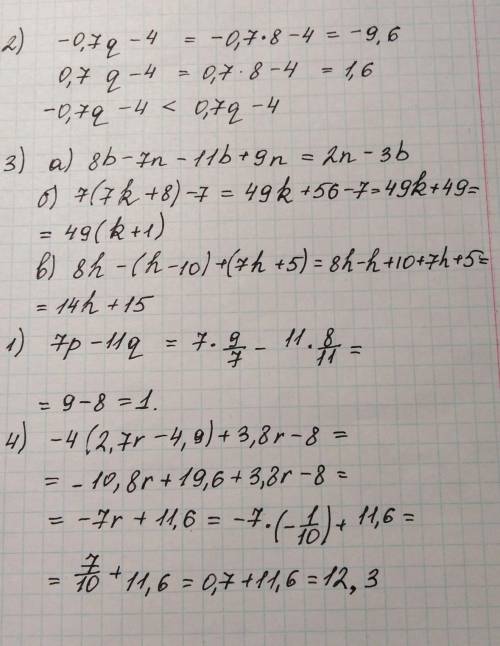 2) -0,7q - 4 = -0,7·8 - 4 = -9,6
0,7 q - 4 = 0,7·8 - 4 = 1,6
-0,7q - 4 < 0,7q - 4
3) а) 8b - 7n - 11b + 9n = 2n - 3b
б) 7(7k + 8) - 7 = 49k + 56 - 7 = 49k + 49 =
= 49(k + 1)
в) 8h - (h - 10) + (7h + 5) = 8h - h + 10 + 7h + 5 =
= 14h + 15
1) 7p - 11q = 7 · 9/7 - 11 · 8/11 =
= 9 - 8 = 1.
4) -4(2,7r - 4,9) + 3,8r - 8 =
= -10,8r + 19,6 + 3,8r - 8 =
= -7r + 11,6 = -7·(-1/10) + 11,6 =
= 7/10 + 11,6 = 0,7 + 11,6 = 12,3